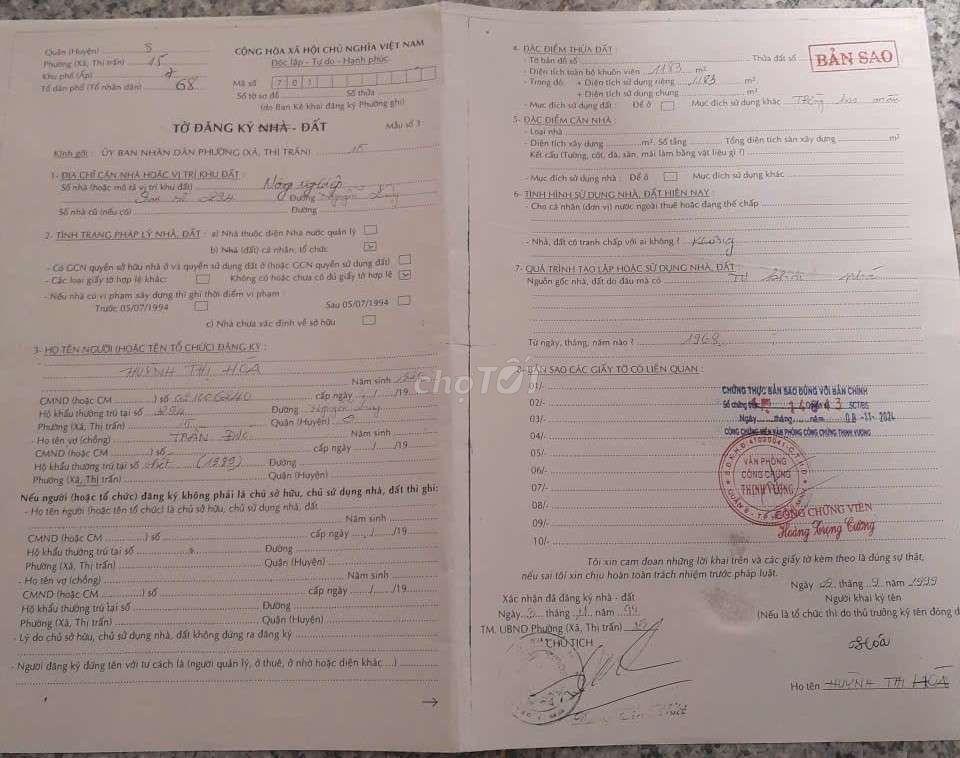 Quận (Huyện) 8
Phường (Xã, Thị trấn) 15
Khu phố (Ấp) 7
Tổ dân phố (Tổ nhân dân) 68
CỘNG HÒA XÃ HỘI CHỦ NGHĨA VIỆT NAM
Độc lập - Tự do - Hạnh phúc
Mã số 701
Số tờ sơ đồ Số thửa
(do Ban Kê khai đăng ký Phường ghi)
TỜ ĐĂNG KÝ NHÀ - ĐẤT Mẫu số 3
Kính gởi : ỦY BAN NHÂN DÂN PHƯỜNG (XÃ, THỊ TRẤN) 15
1- ĐỊA CHỈ CĂN NHÀ HOẶC VỊ TRÍ KHU ĐẤT : Nông nghiệp
Số nhà (hoặc mô tả vị trí khu đất) 294 Đường Nguyễn Duy
Số nhà cũ (nếu có) Đường
2- TÌNH TRẠNG PHÁP LÝ NHÀ, ĐẤT : a) Nhà thuộc diện Nhà nước quản lý
b) Nhà (đất) cá nhân, tổ chức
- Có GCN quyền sở hữu nhà ở và quyền sử dụng đất ở (hoặc GCN quyền sử dụng đất)
- Các loại giấy tờ hợp lệ khác: Không có hoặc chưa có đủ giấy tờ hợp lệ
- Nếu nhà có vi phạm xây dựng thì ghi thời điểm vi phạm
Trước 05/07/1994 Sau 05/07/1994
c) Nhà chưa xác định về sở hữu
3- HỌ TÊN NGƯỜI (HOẶC TÊN TỔ CHỨC) ĐĂNG KÝ :
HUỲNH THỊ HÓA Năm sinh
CMND (hoặc CM ) số cấp ngày / /19
Hộ khẩu thường trú tại số 294 Đường Nguyễn Duy
Phường (Xã, Thị trấn) 15 Quận (Huyện) 8
- Họ tên vợ (chồng) TRẦN
CMND (hoặc CM ) số cấp ngày / /19
Hộ khẩu thường trú tại số chết (1989) Đường
Phường (Xã, Thị trấn) Quận (Huyện)
Nếu người (hoặc tổ chức) đăng ký không phải là chủ sở hữu, chủ sử dụng nhà, đất thì ghi:
- Họ tên người (hoặc tên tổ chức) là chủ sở hữu, chủ sử dụng nhà, đất
Năm sinh
CMND (hoặc CM ) số cấp ngày / /19
Hộ khẩu thường trú tại số Đường
Phường (Xã, Thị trấn) Quận (Huyện)
- Họ tên vợ (chồng) Năm sinh
CMND (hoặc CM ) số cấp ngày / /19
Hộ khẩu thường trú tại số Đường
Phường (Xã, Thị trấn) Quận (Huyện)
- Lý do chủ sở hữu, chủ sử dụng nhà, đất không đứng ra đăng ký
- Người đăng ký đứng tên với tư cách là (người quản lý, ở thuê, ở nhờ hoặc diện khác ...)
→
4- ĐẶC ĐIỂM THỬA ĐẤT :
- Tờ bản đồ số Thửa đất số
BẢN SAO
- Diện tích toàn bộ khuôn viên 1183 m²
- Trong đó : + Diện tích sử dụng riêng 1183 m²
+ Diện tích sử dụng chung m²
- Mục đích sử dụng đất : Để ở Mục đích sử dụng khác Trồng
5- ĐẶC ĐIỂM CĂN NHÀ :
- Loại nhà
- Diện tích xây dựng m². Số tầng Tổng diện tích sàn xây dựng m²
Kết cấu (Tường, cột, đà, sàn, mái làm bằng vật liệu gì ?)
- Mục đích sử dụng nhà : Để ở Mục đích sử dụng khác
6- TÌNH HÌNH SỬ DỤNG NHÀ, ĐẤT HIỆN NAY :
- Cho cá nhân (đơn vị) nước ngoài thuê hoặc đang thế chấp
- Nhà, đất có tranh chấp với ai không ? Không
7- QUÁ TRÌNH TẠO LẬP HOẶC SỬ DỤNG NHÀ, ĐẤT :
Nguồn gốc nhà, đất do đâu mà có Tự khai phá
Từ ngày, tháng, năm nào ? 1968
8- BẢN SAO CÁC GIẤY TỜ CÓ LIÊN QUAN :
01/-
02/-
03/-
04/-
05/-
06/-
07/-
08/-
09/-
10/-
chợTỐT
CHỨNG THỰC BẢN SAO ĐÚNG VỚI BẢN CHÍNH
Số chứng thực SCT/BS
Ngày tháng năm 08-11-2024
CÔNG CHỨNG VIÊN VĂN PHÒNG CÔNG CHỨNG THỊNH VƯỢNG
VĂN PHÒNG
CÔNG CHỨNG
THỊNH VƯỢNG
CÔNG CHỨNG VIÊN
Hoàng Trọng Cường
Tôi xin cam đoan những lời khai trên và các giấy tờ kèm theo là đúng sự thật,
nếu sai tôi xin chịu hoàn toàn trách nhiệm trước pháp luật.
Xác nhận đã đăng ký nhà - đất
Ngày tháng năm 99
TM. UBND Phường (Xã, Thị trấn) 15
CHỦ TỊCH
Ngày tháng 9 năm 1999
Người khai ký tên
(Nếu là tổ chức thì do thủ trưởng ký tên đóng d
Hóa
Họ tên HUỲNH THỊ HÓA